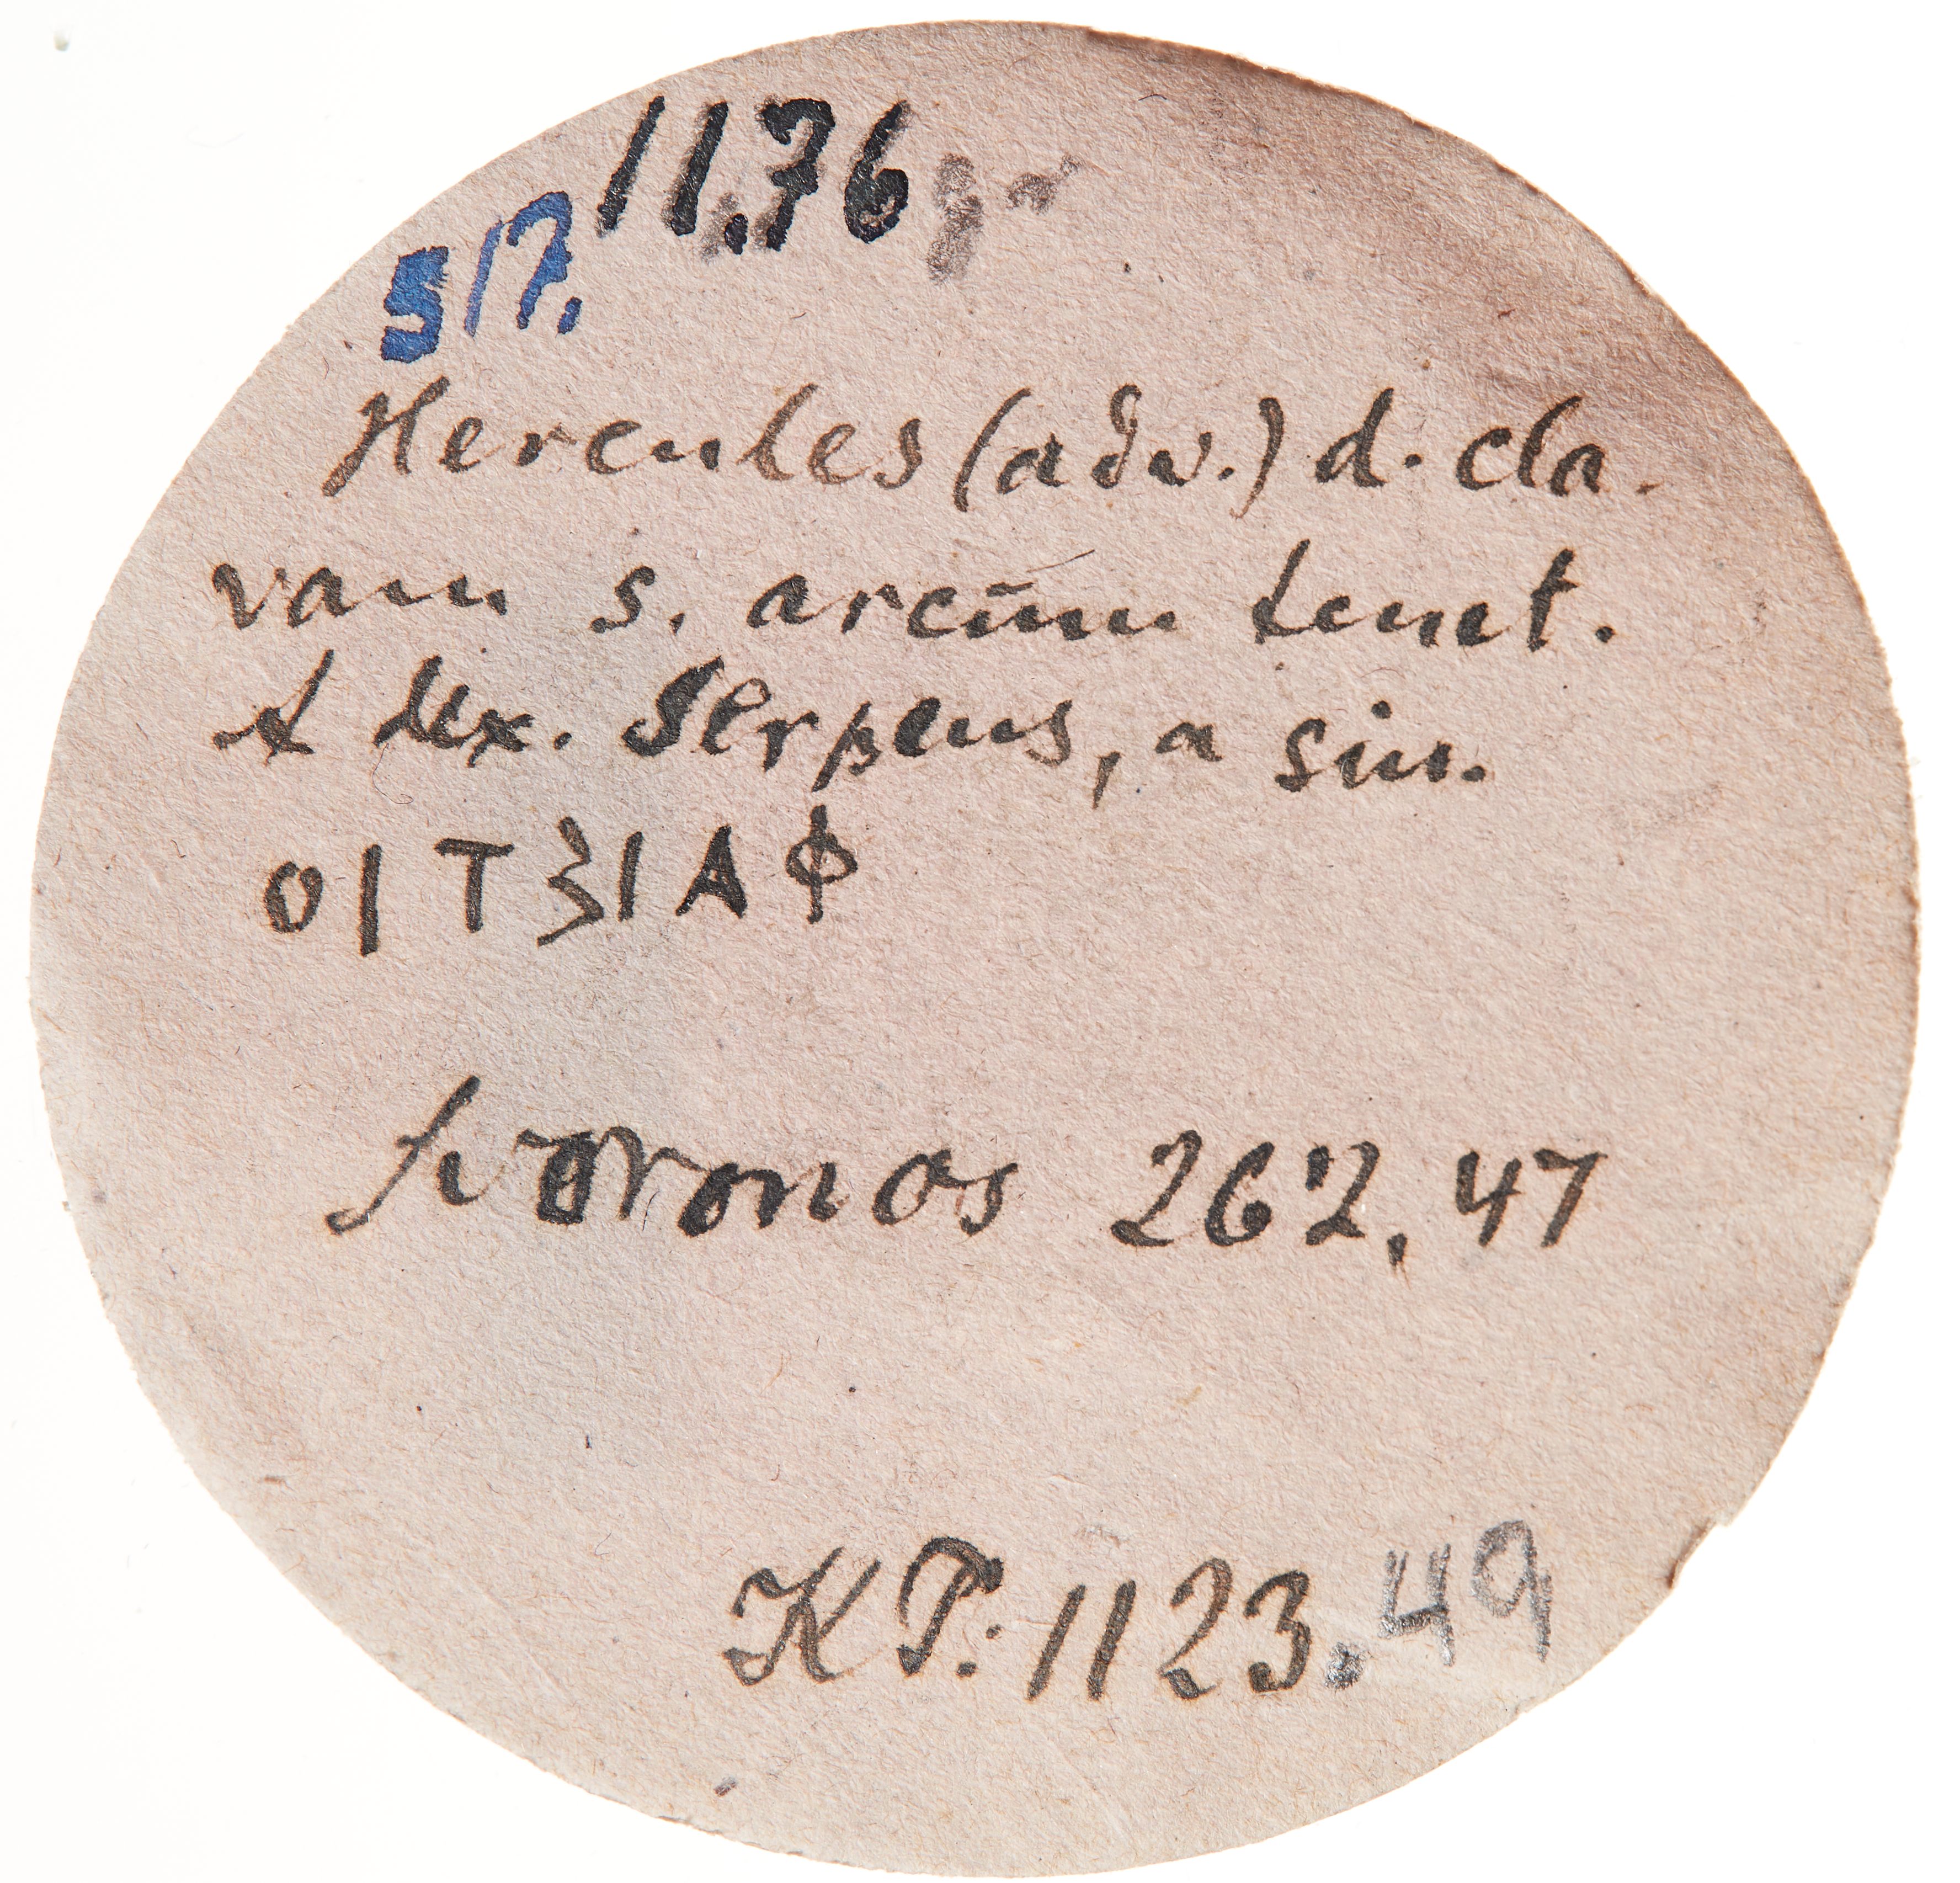 11,76 gr
517,
Hercules (adv.) d. cla-
vam s. arcum tenet.
A dex. Serpens, a sin.
ΟΙΤΣΙΑΦ
Svoronos 262, 47
KP: 1123.49